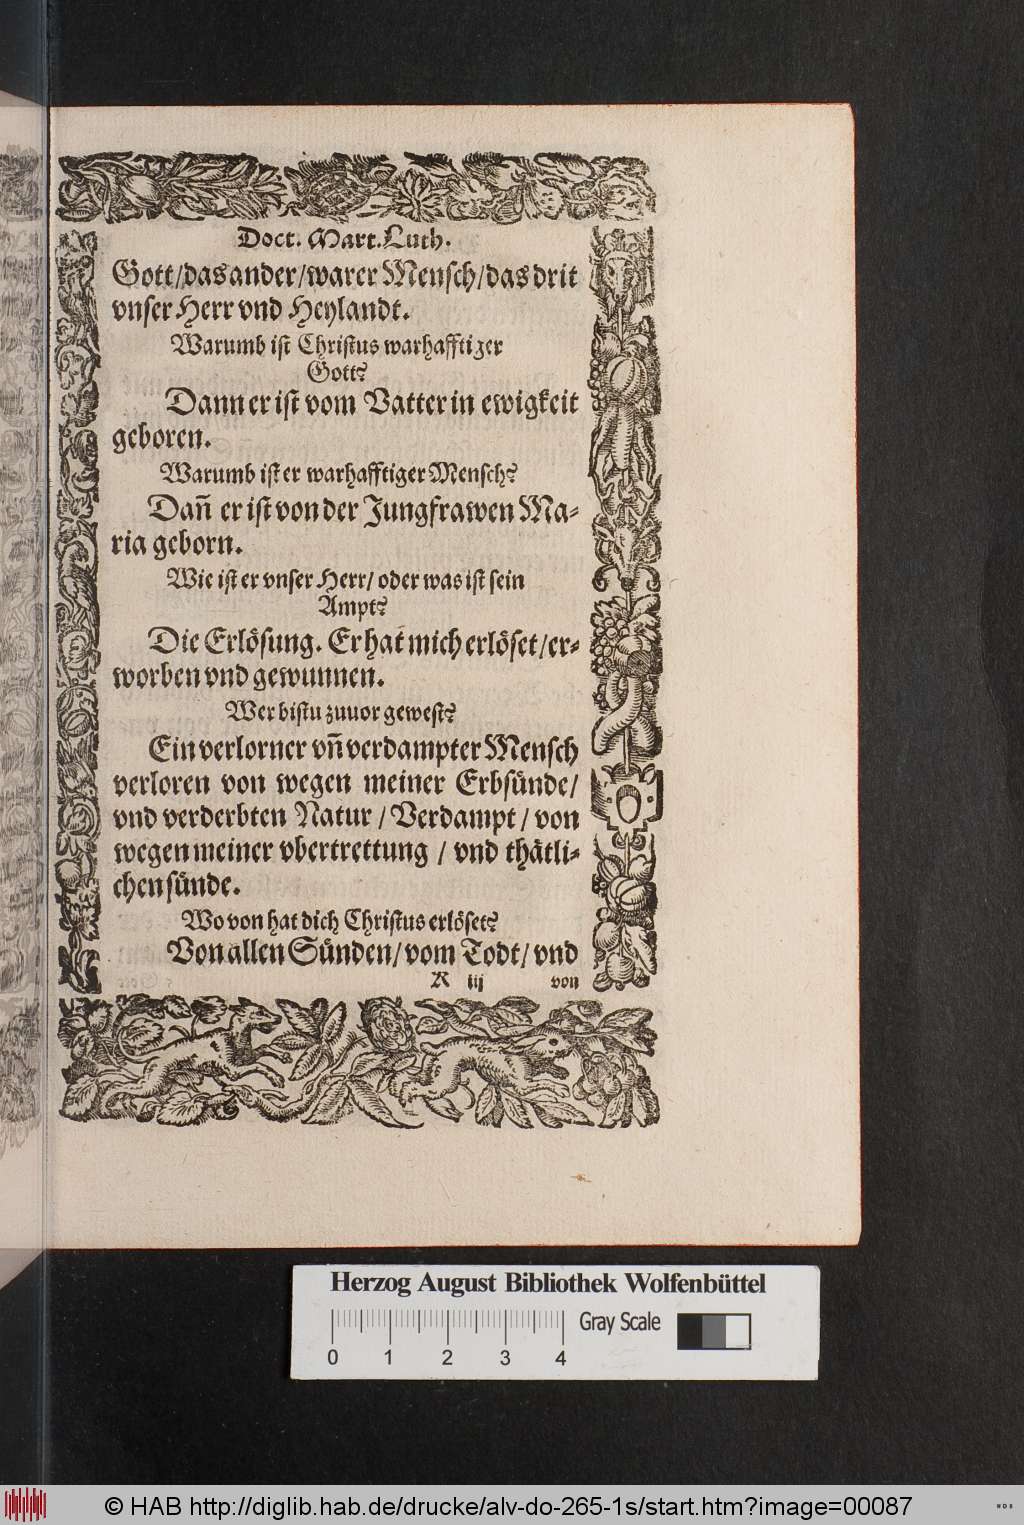 Doct. Mart. Luth.
Gott/das ander/warer Mensch/das drit
vnser Herr vnd Heylandt.
Warumb ist Christus warhafftiger
Gott?
Dann er ist vom Vatter in ewigkeit
geboren.
Warumb ist er warhafftiger Mensch?
Dañ er ist von der Jungfrawen Ma-
ria geborn.
Wie ist er vnser Herr/ oder was ist sein
Ampt?
Die Erlösung. Er hat mich erlöset/er-
worben vnd gewunnen.
Wer bistu zuuor gewest?
Ein verlorner vñ verdampter Mensch
verloren von wegen meiner Erbsünde/
vnd verderbten Natur / Verdampt / von
wegen meiner vbertrettung / vnd thätli-
chen sünde.
Wo von hat dich Christus erlöset?
Von allen Sünden/ vom Todt/ vnd
K iij von
Herzog August Bibliothek Wolfenbüttel
Gray Scale
0 1 2 3 4
© HAB http://diglib.hab.de/drucke/alv-do-265-1s/start.htm?image=00087